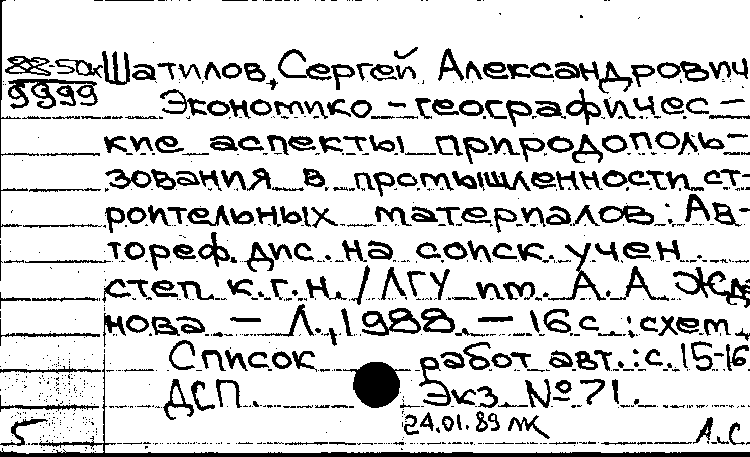 88-50к Шатилов, Сергей Александрович
9999 Экономико-географичес-
кие аспекты природополь-
зования в промышленности ст-
роительных материалов: Ав-
тореф. дис. на соиск. учен.
степ к.г.н. / ЛГУ им. А. А Жда
нова. - Л., 1988. - 16 с. : схем.
Список работ авт.: с. 15-16
ДСП. Экз. №71.
24.01.89 МК
5 А.С